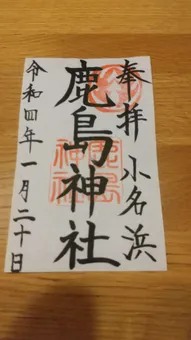 奉拝 小名浜
鹿島神社
鹿島
神社
令和四年一月二十日